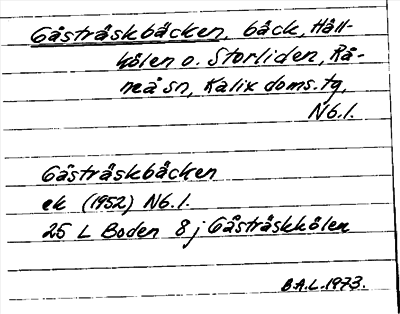 Gåsträskbäcken, bäck, Håll-
kölen o. Storliden, Rå-
neå sn, Kalix doms.tg,
Nb.l.
Gåsträskbäcken
ek (1952) Nb.l.
25 L Boden 8 j Gåsträskkölen
B.A.L. 1973.